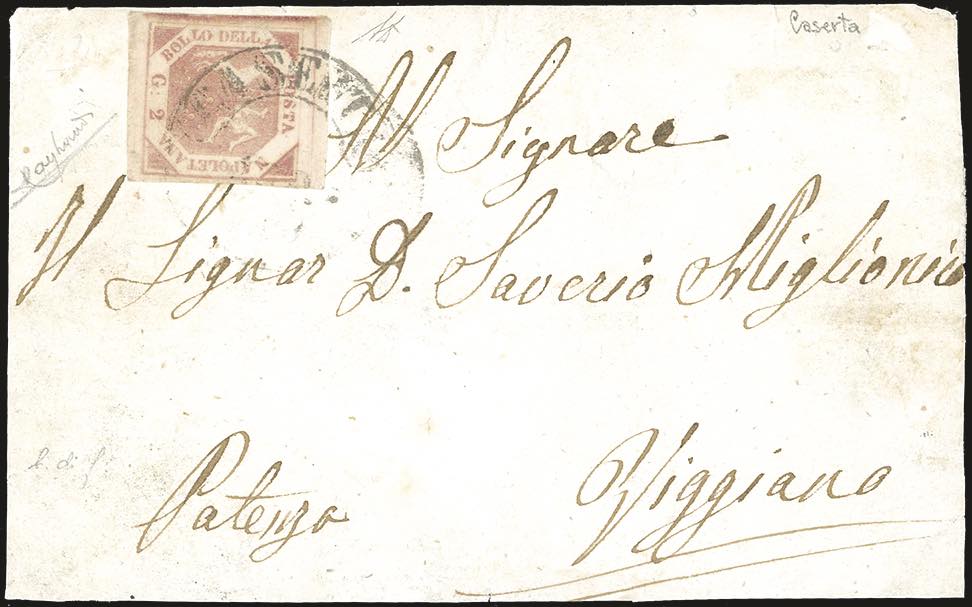 Caserta
BOLLO DELLA POSTA
NAPOLETANA
G. 2
Al Signore
Il Signor D. Saverio Miglionico
Potenza Viggiano